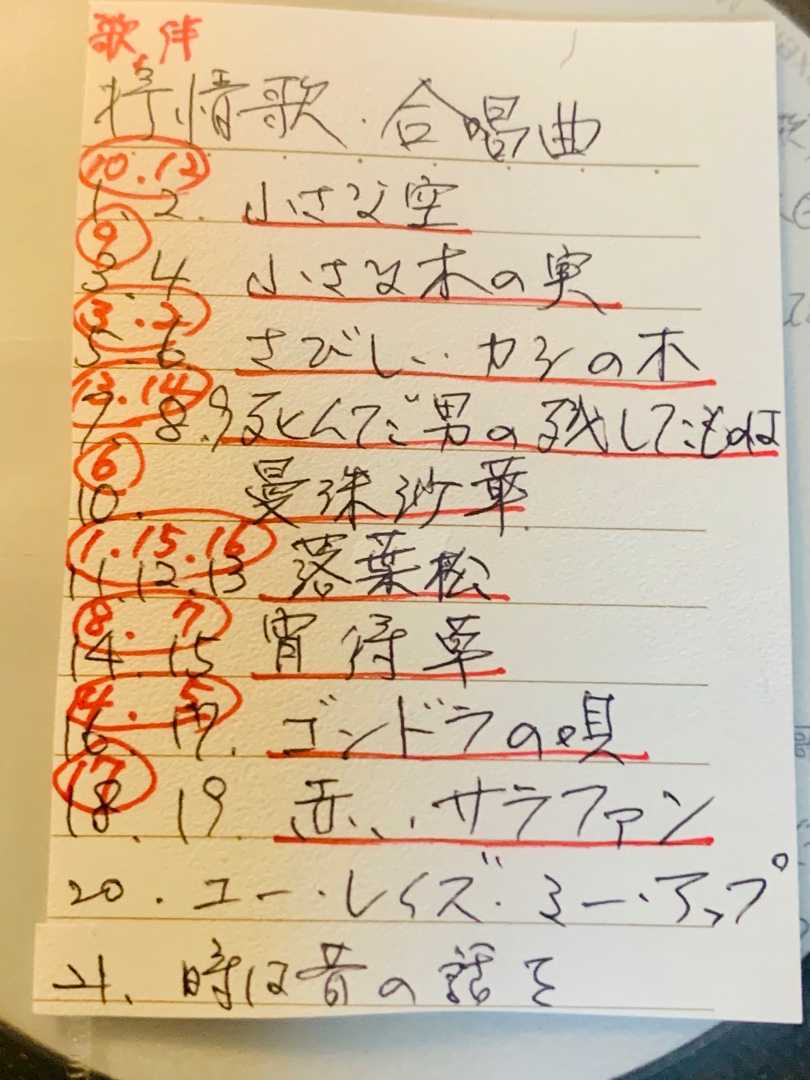 歌伴
抒情歌・合唱曲
10.12
1. 2. 小さな空
9
3. 4 小さな木の実
3.2
5. 6 さびしいカシの木
13.14
7. 8.9 死んだ男の残したものは
6
10. 曼珠沙華
1.15.16
11.12.13 落葉松
8. 7
14. 15 宵待草
4. 5
16. 17. ゴンドラの唄
17
18. 19. 赤いサラファン
20. ユー・レイズ・ミー・アップ
21. 時は昔の話を